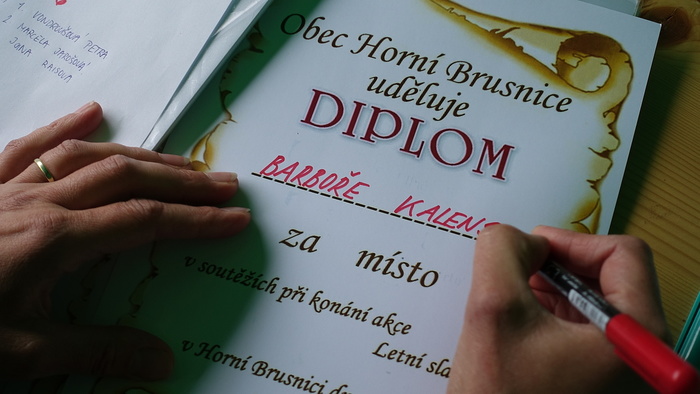 1 VONDROUŠOVÁ PETRA
2 MARCELA JAROŠOVÁ
JANA RAISOVÁ
Obec Horní Brusnice
uděluje
DIPLOM
BARBOŘE KALENS
za místo
v soutěžích při konání akce
Letní sla
v Horní Brusnici d